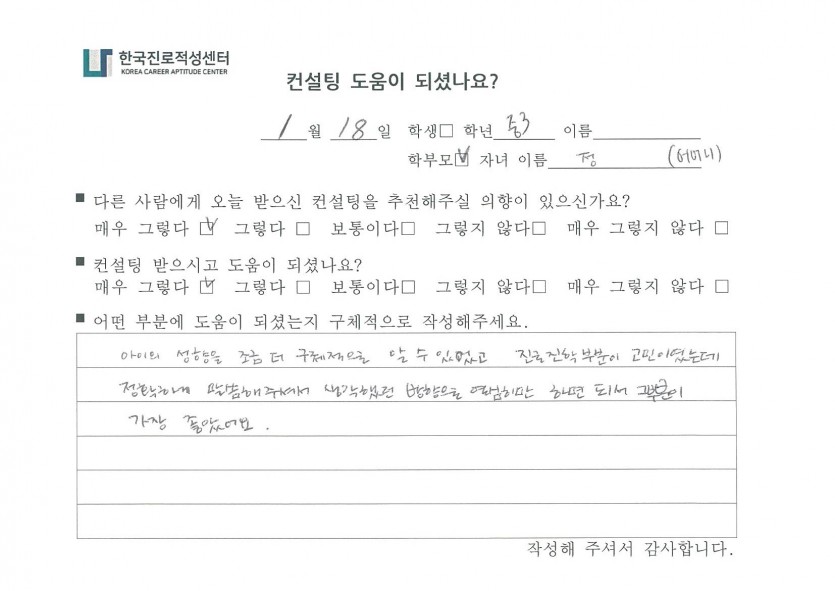 한국진로적성센터
KOREA CAREER APTITUDE CENTER
컨설팅 도움이 되셨나요?
1 월 18 일 학생□ 학년 중3 이름
학부모☑ 자녀 이름 정 (어머니)
■ 다른 사람에게 오늘 받으신 컨설팅을 추천해주실 의향이 있으신가요?
매우 그렇다 ☑ 그렇다 □ 보통이다□ 그렇지 않다□ 매우 그렇지 않다 □
■ 컨설팅 받으시고 도움이 되셨나요?
매우 그렇다 ☑ 그렇다 □ 보통이다□ 그렇지 않다□ 매우 그렇지 않다 □
■ 어떤 부분에 도움이 되셨는지 구체적으로 작성해주세요.
아이의 성향을 조금 더 구체적으로 알 수 있었고 진로진학부분이 고민이였는데
정확하게 말씀해주셔서 생각했던 방향으로 열심히만 하면 되서 그부분이
가장 좋았어요.
작성해 주셔서 감사합니다.